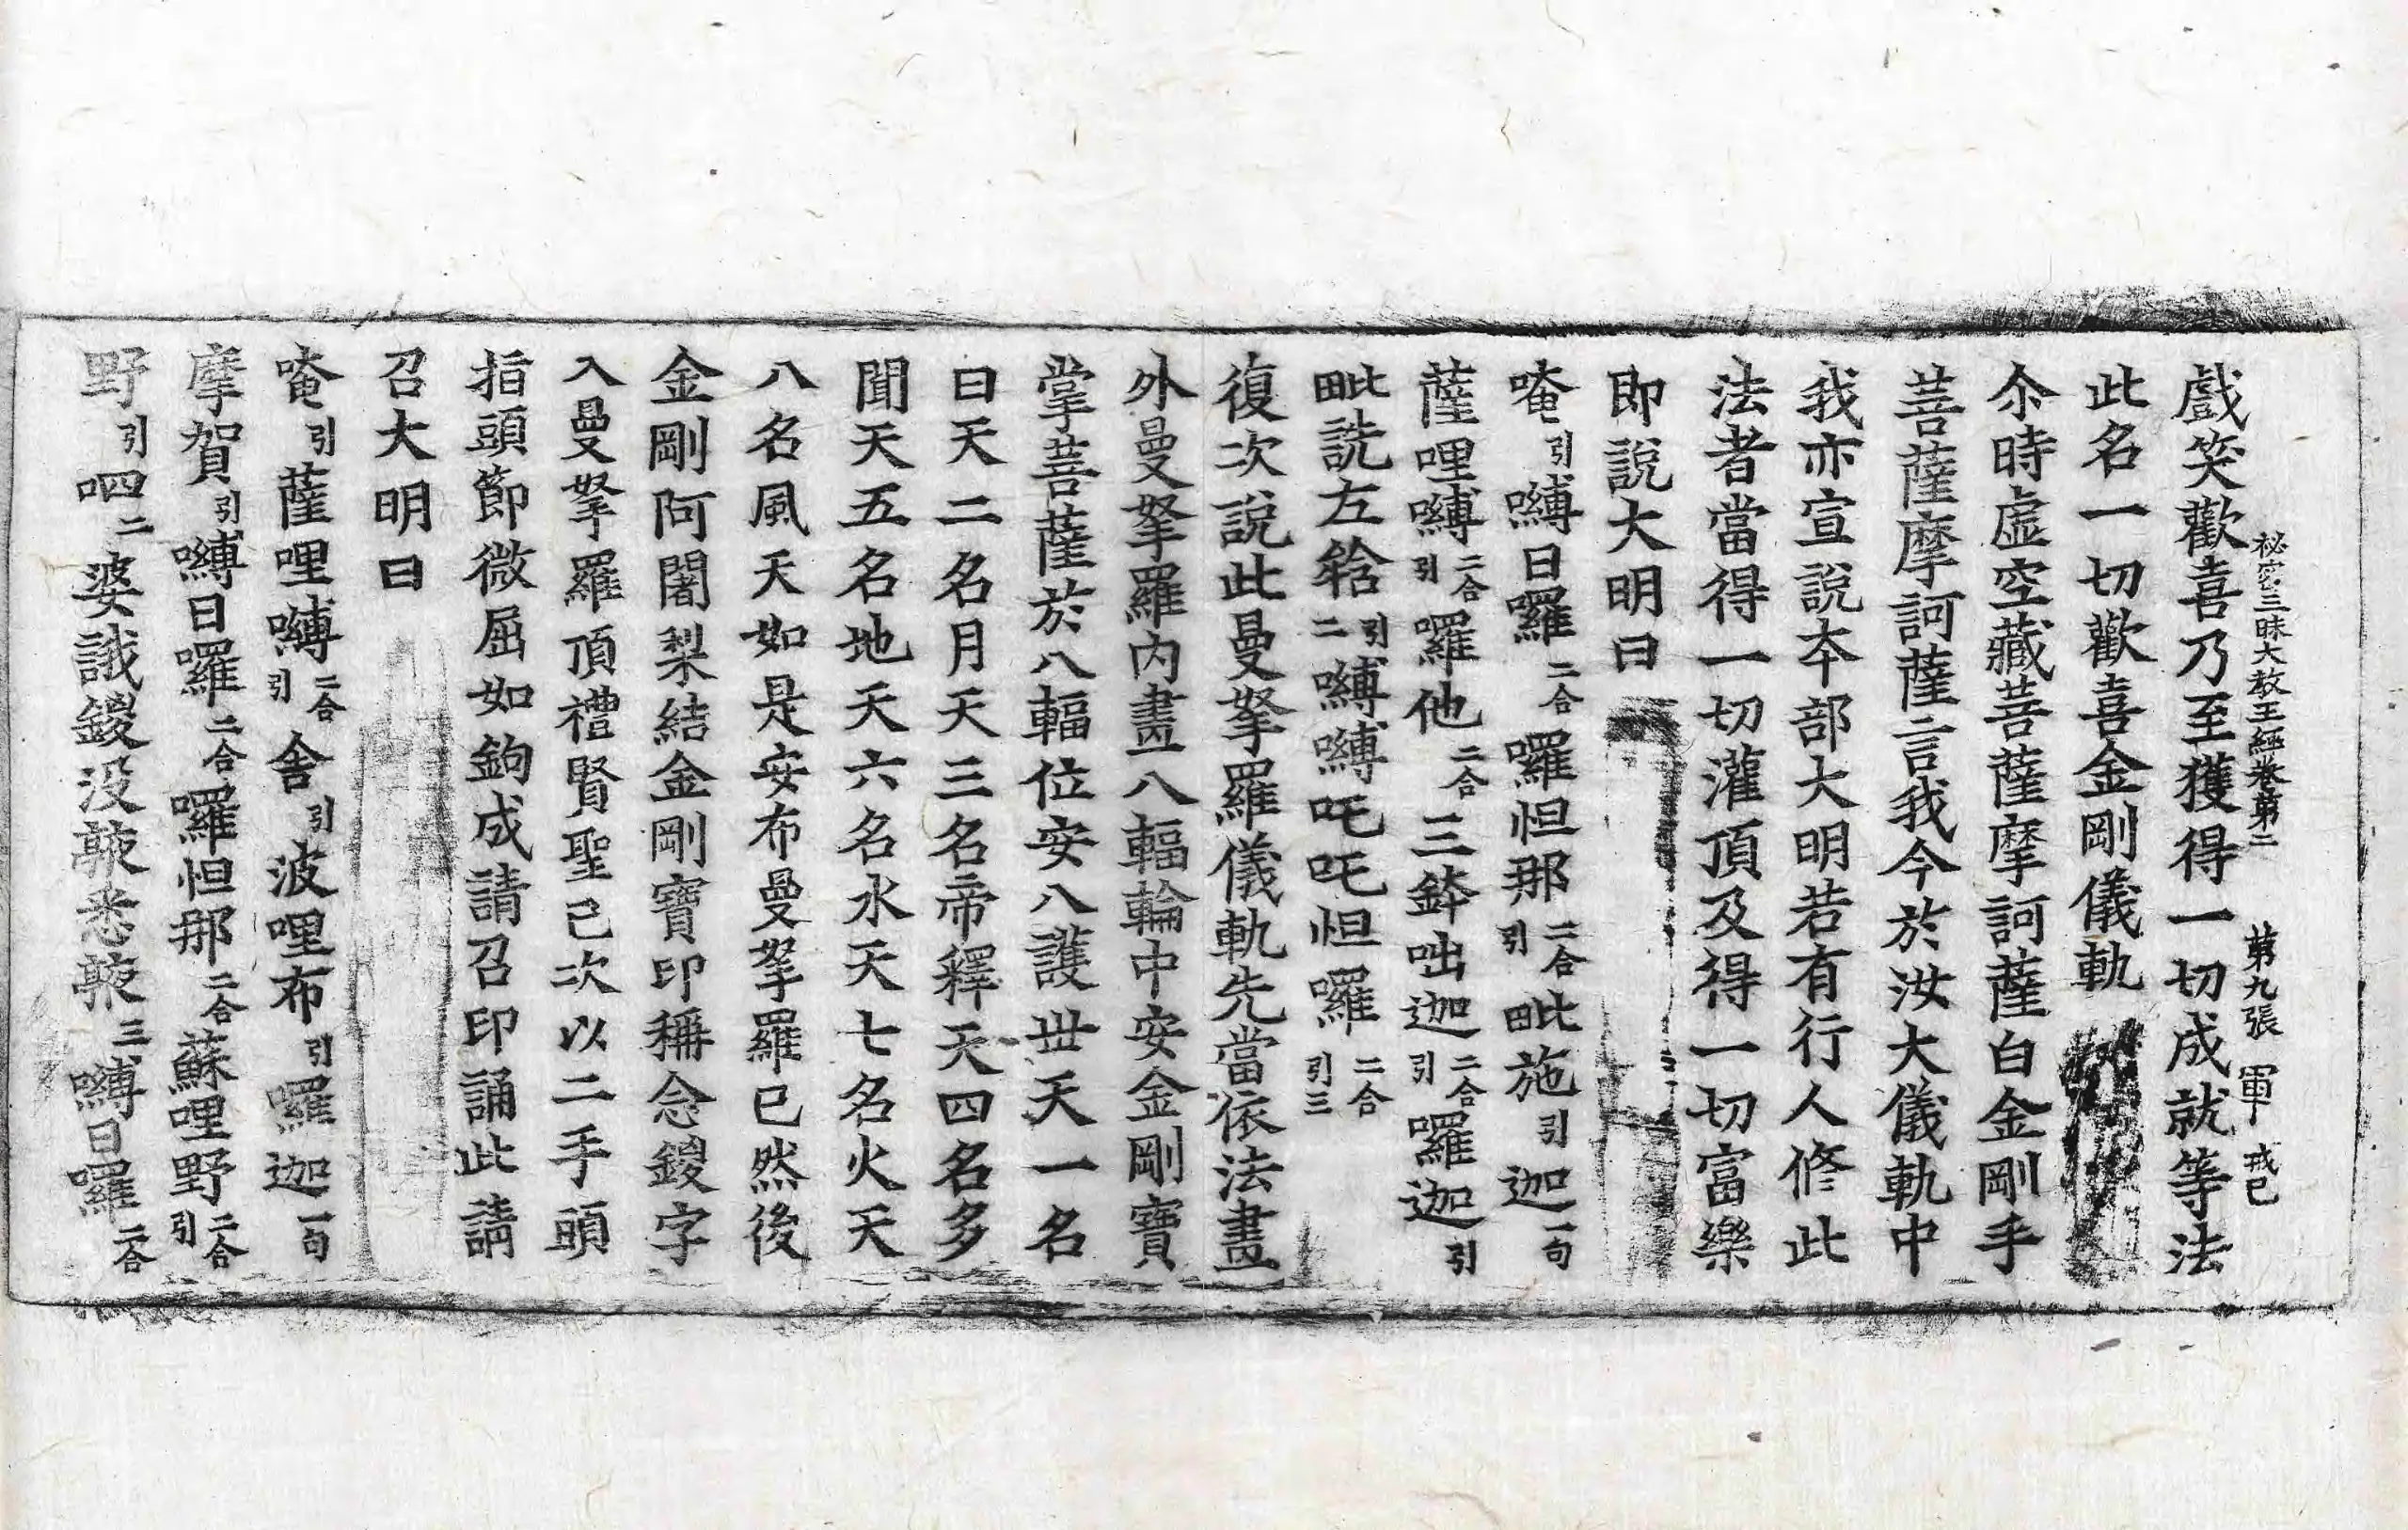 秘密三昧大教王經卷第二　第九張　軍　戒己
戲笑歡喜乃至獲得一切成就等法
此名一切歡喜金剛儀軌
尒時虛空藏菩薩摩訶薩白金剛手
菩薩摩訶薩言我今於汝大儀軌中
我亦宣說本部大明若有行人修此
法者當得一切灌頂及得一切富樂
即說大明曰
唵引嚩日囉二合囉怛那二合引毗施引迦一句
薩哩嚩二合引囉他二合三鉢咄迦二合引囉迦引
毗詵左矝引二嚩嚩吒吒怛囉二合引三
復次說此曼拏羅儀軌先當依法畫
外曼拏羅內畫八輻輪中安金剛寶
掌菩薩於八輻位安八護世天一名
日天二名月天三名帝釋天四名多
聞天五名地天六名水天七名火天
八名風天如是安布曼拏羅已然後
金剛阿闍梨結金剛寶印稱念鑁字
入曼拏羅頂禮賢聖已次以二手頭
指頭節微屈如鉤成請召印誦此請
召大明曰
唵引薩哩嚩二合引舍引波哩布引囉迦一句
摩賀引嚩日囉二合囉怛那二合蘇哩野二合引
野引呬二婆誐鑁沒𩎟悉𩎟三嚩日囉二合